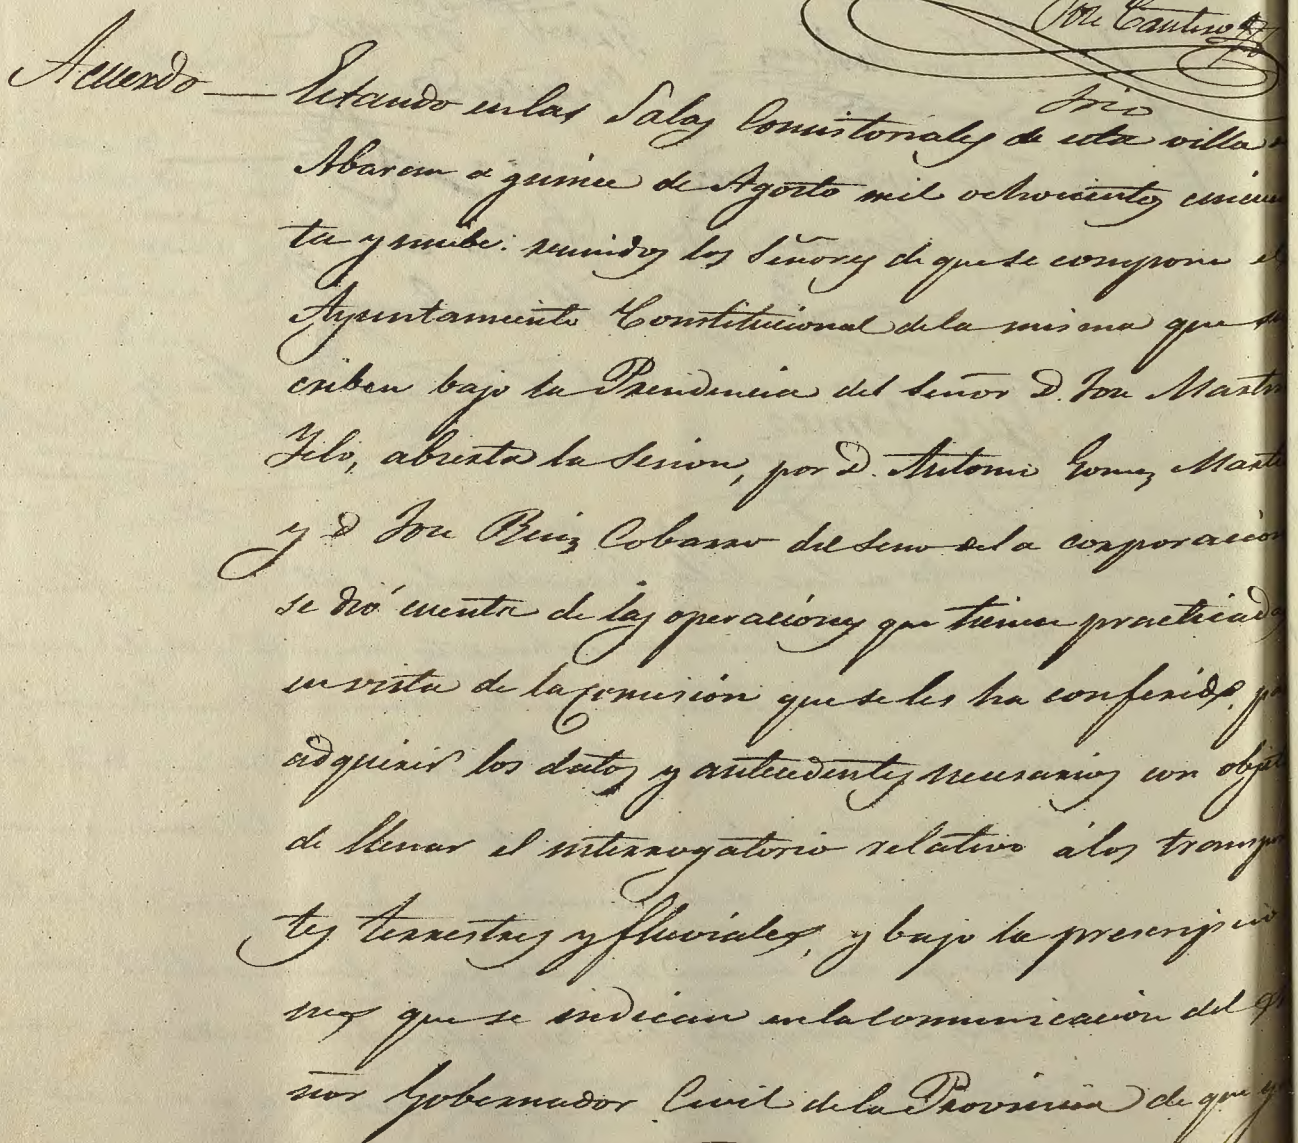 José Cantero
Srio
Acuerdo — Estando en las Salas Consistoriales de esta villa
Abaran a quince de Agosto mil ochocientos cincuen
ta y nuebe: reunidos los Señores de que se compone el
Ayuntamiento Constitucional de la misma que su
criben bajo la Presidencia del Señor D. Jose Martin
Yelo, abierta la Sesion, por D. Antonio Gomez Marti
y D Jose Ruiz Cobarro del seno de la corporacion
se dió cuenta de las operaciones que tienen practicadas
en vista de la comisión que se les ha conferido, pa
adquirir los datos y antecedentes necesarios con objeto
de llenar el interrogatorio relativo á los transpor
tes terrestres y fluviales, y bajo la prescripcio
nes que se indican en la comunicacion del Se
ñor Gobernador Civil de la Provincia de que ya